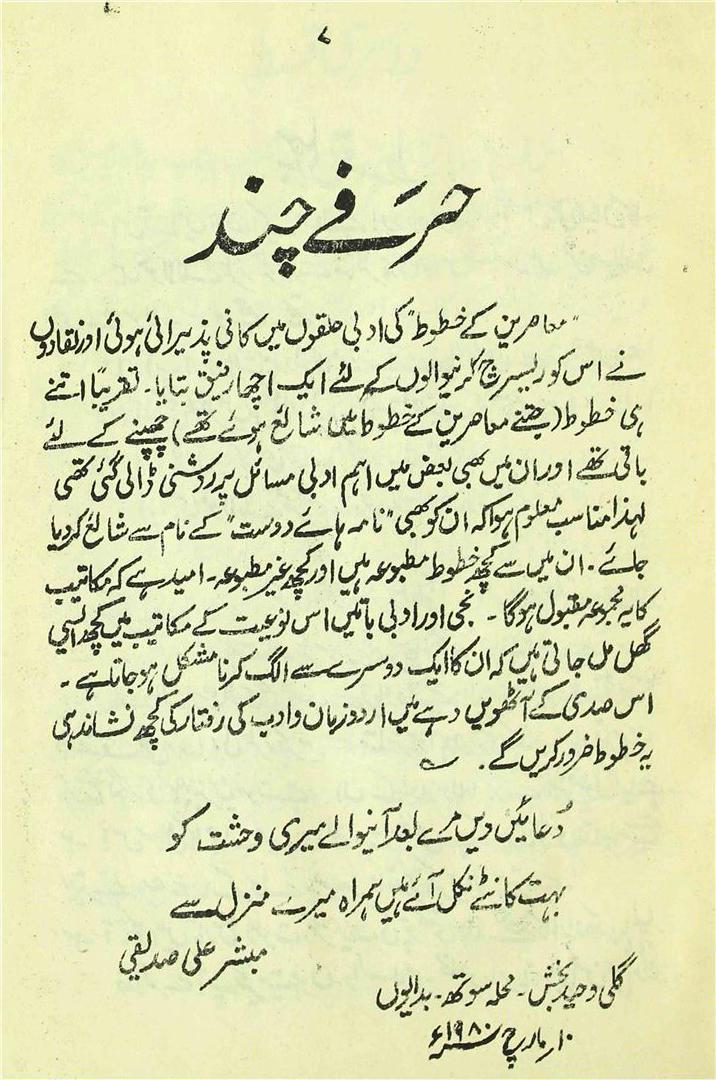 ۷
حرفے چند
"معاصرین کے خطوط" کی ادبی حلقوں میں کافی پذیرائی ہوئی اور نقادوں
نے اس کو ریسرچ کرنیوالوں کے لئے ایک اچھا رفیق بتایا۔ تقریباً اتنے
ہی خطوط (جتنے معاصرین کے خطوط میں شائع ہوئے تھے) چھپنے کے لئے
باقی تھے اور ان میں بھی بعض میں اہم ادبی مسائل پر روشنی ڈالی گئی تھی
لہذا مناسب معلوم ہوا کہ ان کو بھی "نامہ ہائے دوست" کے نام سے شائع کردیا
جائے۔ ان میں سے کچھ خطوط مطبوعہ ہیں اور کچھ غیر مطبوعہ۔ امید ہے کہ مکاتیب
کا یہ مجموعہ مقبول ہوگا۔ نجی اور ادبی باتیں اس نوعیت کے مکاتیب میں کچھ ایسی
گھل مل جاتی ہیں کہ ان کا ایک دوسرے سے الگ کرنا مشکل ہوجاتا ہے۔
اس صدی کے آٹھویں دہے میں اردو زبان و ادب کی رفتار کی کچھ نشاندہی
یہ خطوط ضرور کریں گے۔ ؎
دُعائیں دیں مرے بعد آنیوالے میری وحشت کو
بہت کانٹے نکل آئے ہیں ہمراہ میرے منزل سے
مبشر علی صدیقی
گلی وحید بخش۔ محلہ سوتھ۔ بدایوں
۱۰ر مارچ ۱۹۸۰ء